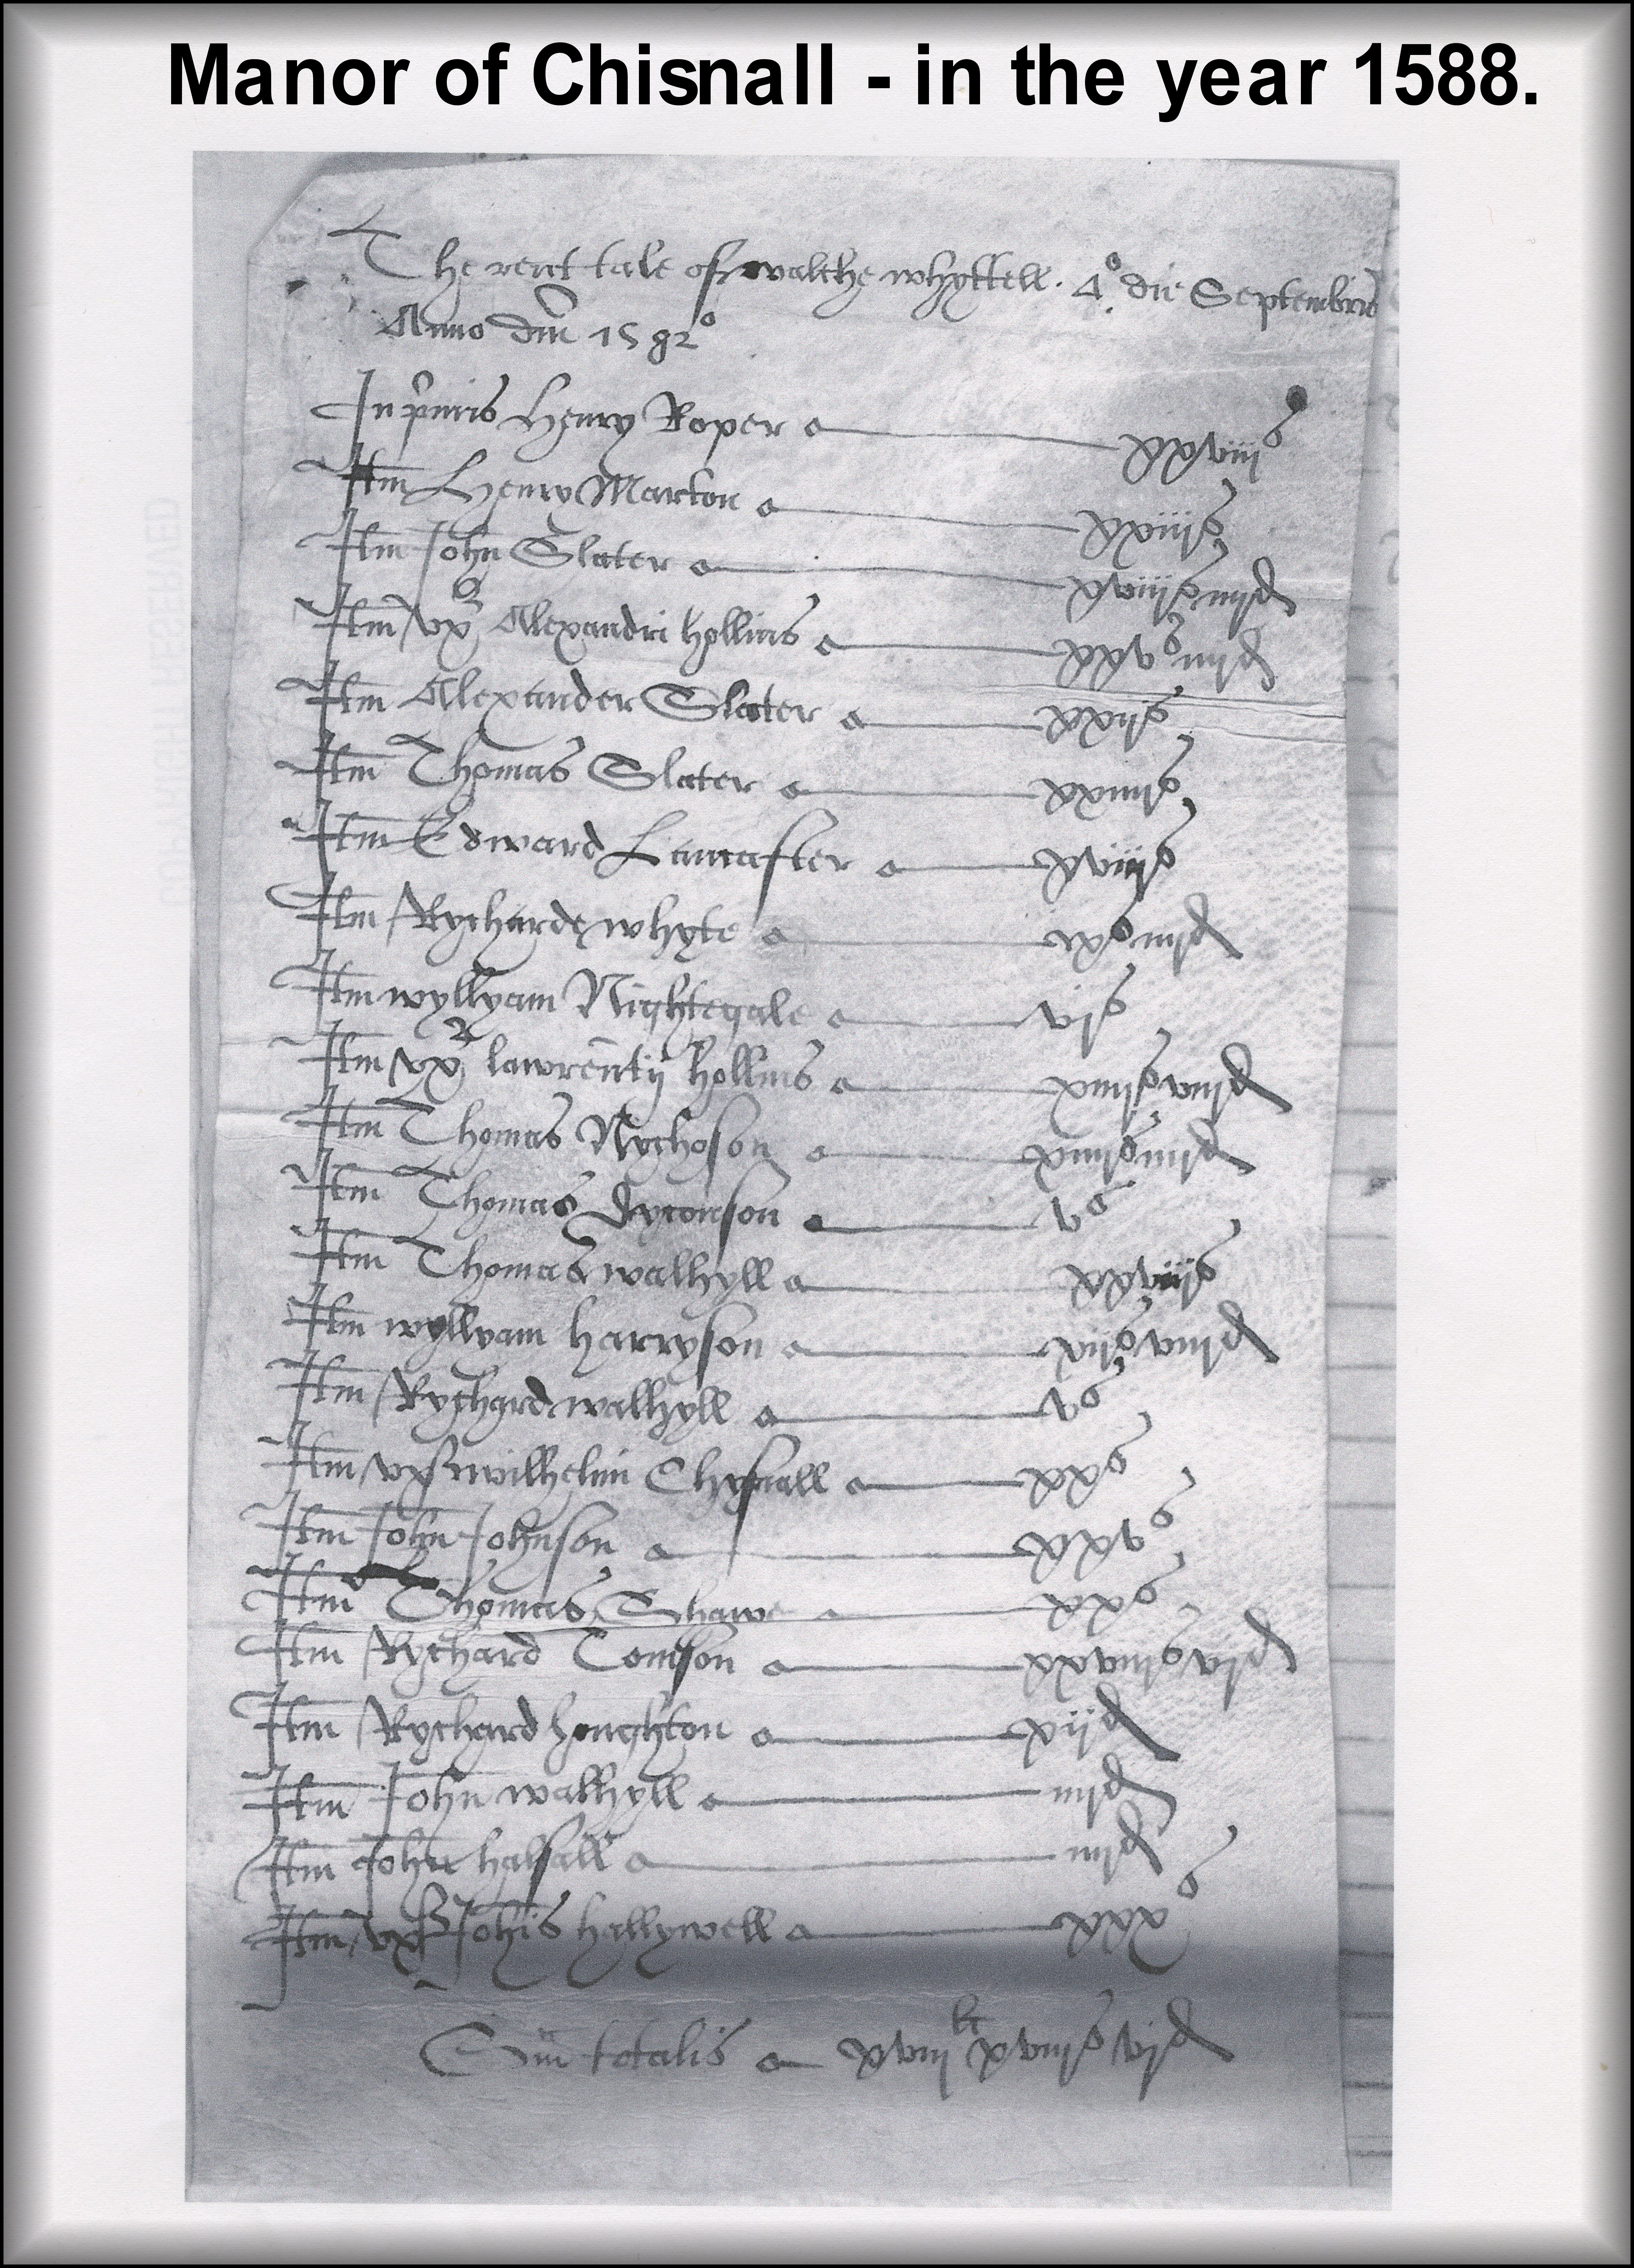 Manor of Chisnall - in the year 1588.
The rent tale of walche whyttell. 4° die Septembris
Anno dm 1582°
In pimis Henry Roper xxviijs
Itm Henry Marton xxiijs
Itm John Slater xviijs iiijd
Itm vx Alexandri hollins xxvs iiijd
Itm Alexander Slater xxijs
Itm Thomas Slater xxiiijs
Itm Edward Lancaster xviijs
Itm Rycharde whyte ixs iiijd
Itm wyllyam Nightegale vjs
Itm vx lawrentij hollins xiiijs viijd
Itm Thomas Nychoson xiiijs iiijd
Itm Thomas Dyconson vs
Itm Thomas walhyll xxviijs
Itm wyllyam harryson xijs viijd
Itm Rychard walhyll vs
Itm vx wilhelmi Chysnall xxs
Itm John Johnson xxvs
Itm Thomas Shawe xxs
Itm Rychard Tomson xxviijs vjd
Itm Rychard houghton xijd
Itm John walhyll iiijd
Itm John halsall iiijd
Itm vx Johis hallywell xxxs
Sm totalis xviij li xviijs vjd
COPYRIGHT RESERVED